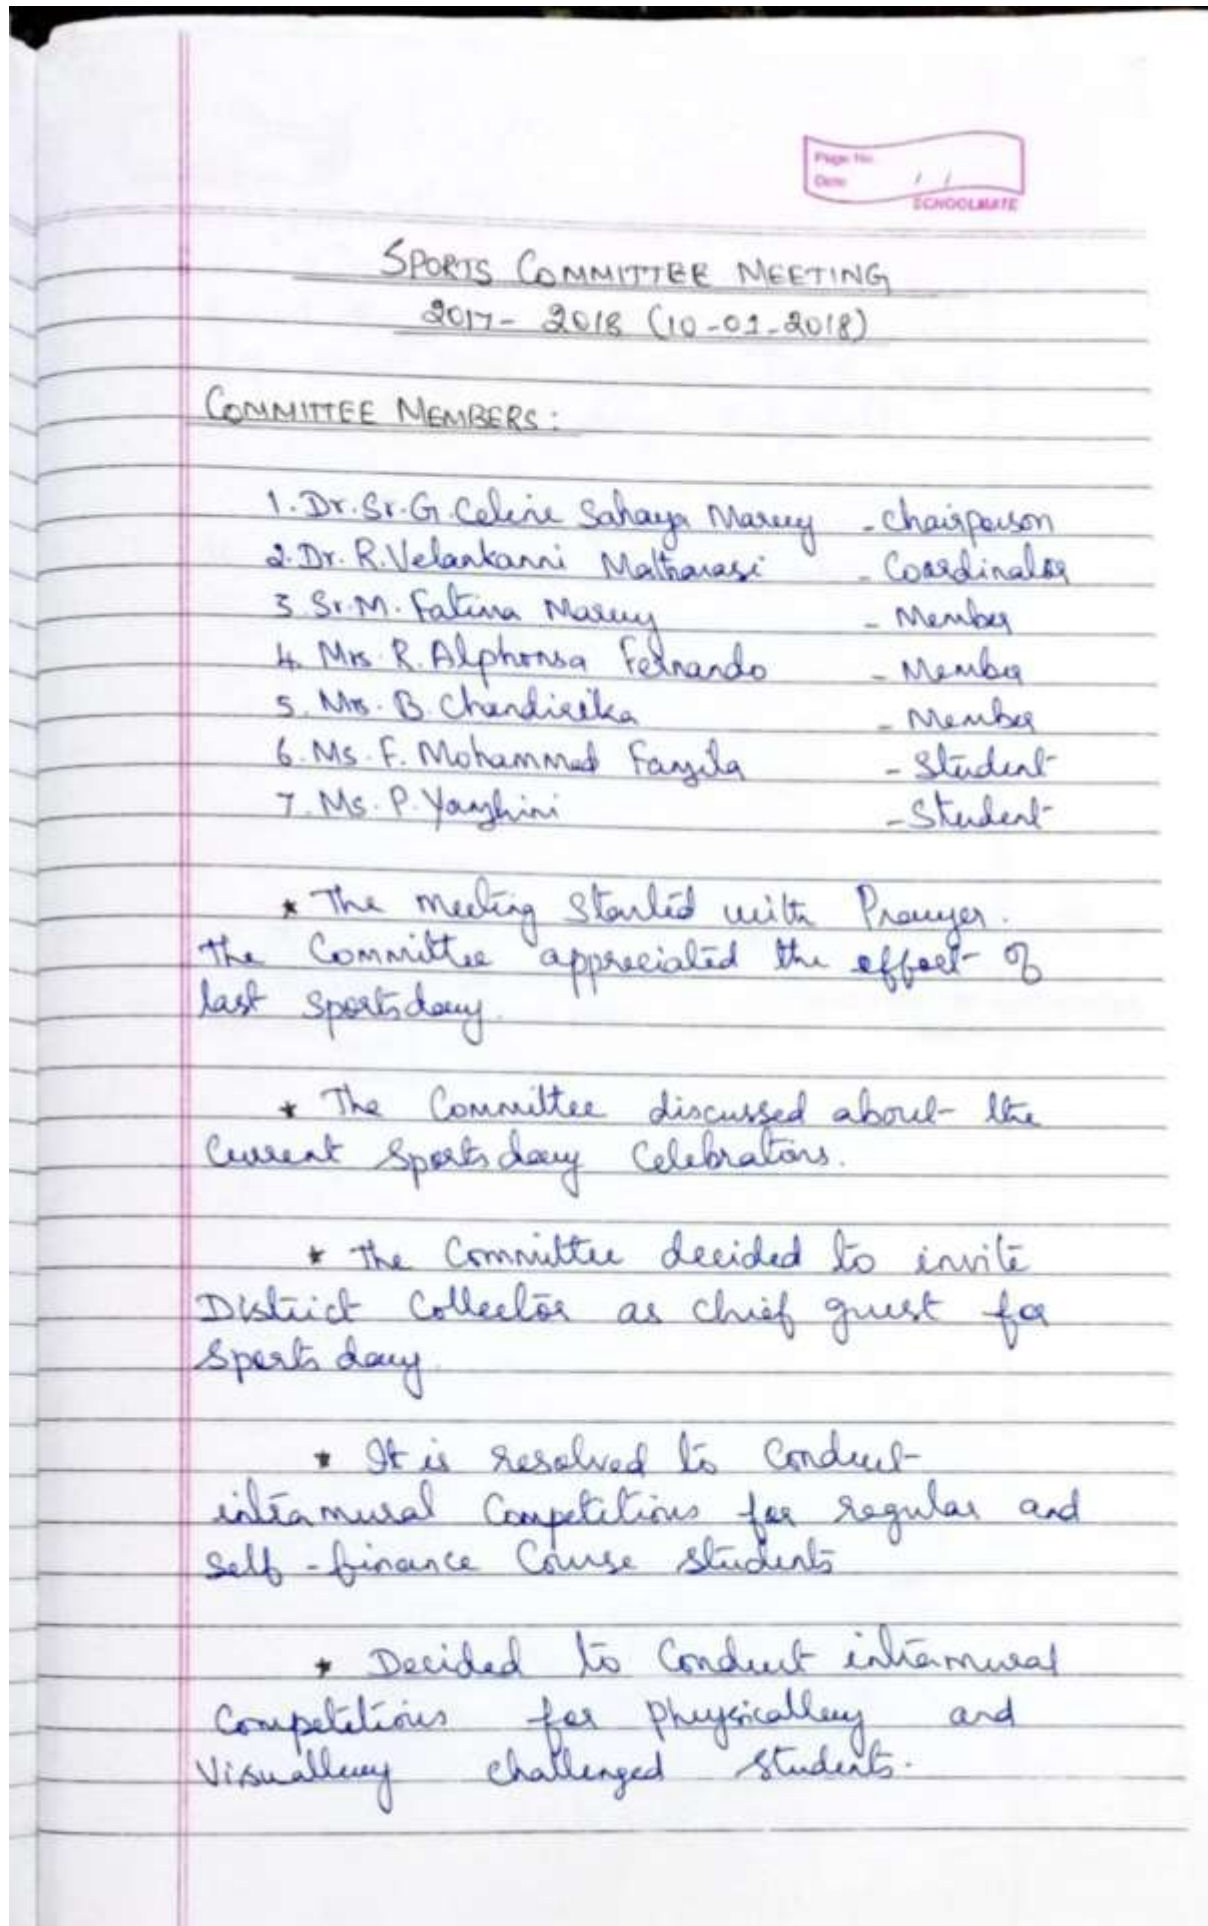 Page No.
Date / /
SCHOOLMATE
SPORTS COMMITTEE MEETING
2017- 2018 (10-01-2018)
COMMITTEE MEMBERS:
1. Dr. Sr. G. Celine Sahaya Mary - Chairperson
2. Dr. R. Velankanni Matharasi - Coordinator
3. Sr. M. Fatima Mary - Member
4. Mrs. R. Alphonsa Fernando - Member
5. Mrs. B. Chandirika - Member
6. Ms. F. Mohammed Fazila - Student
7. Ms. P. Yazhini - Student
* The meeting started with Prayer.
The Committee appreciated the effort of
last sportsday.
* The Committee discussed about the
Current Sportsday Celebrations.
* The Committee decided to invite
District Collector as chief guest for
Sportsday.
* It is resolved to Conduct
intramural Competitions for regular and
self-finance Course students
* Decided to Conduct intramural
Competitions for physically and
Visually challenged students.